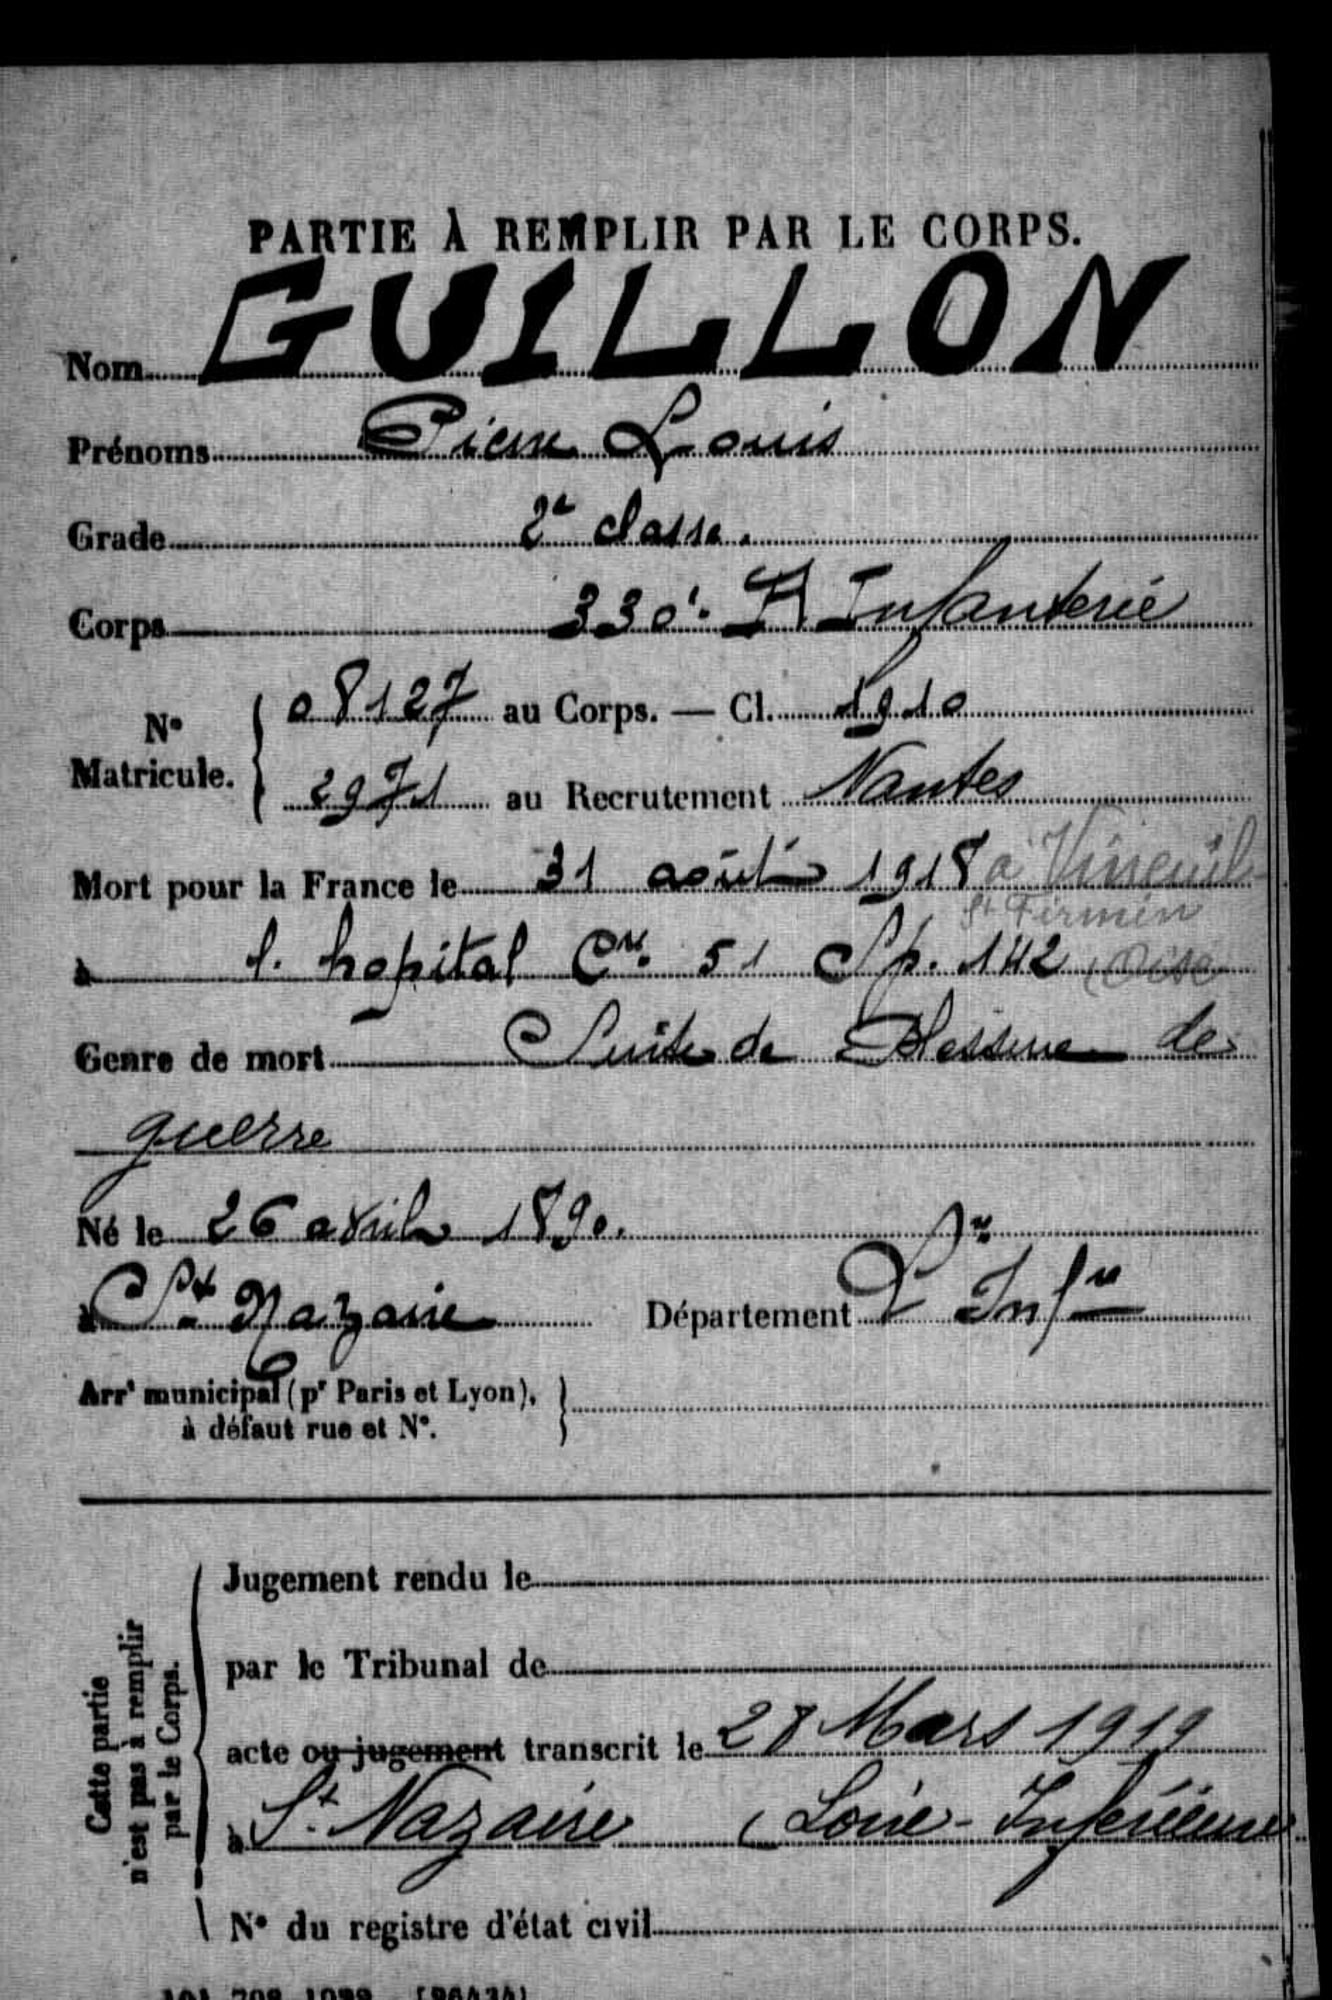 PARTIE À REMPLIR PAR LE CORPS.
Nom GUILLON
Prénoms Pierre Louis
Grade 2e classe.
Corps 330e R Infanterie
N° Matricule. { 08127 au Corps. — Cl. 1910
2971 au Recrutement Nantes
Mort pour la France le 31 août 1918 à Vineuil
St Firmin
à l. hopital Cre 51 Sp. 142 (Oise
Genre de mort Suite de Blessure de
guerre
Né le 26 avril 1890.
à St Nazaire Département Lre Infre
Arrt municipal (pr Paris et Lyon), }
à défaut rue et N°.
Cette partie
n'est pas à remplir
par le Corps.
Jugement rendu le
par le Tribunal de
acte ou jugement transcrit le 28 Mars 1919
à St. Nazaire (Loire-Inférieure
N° du registre d'état civil